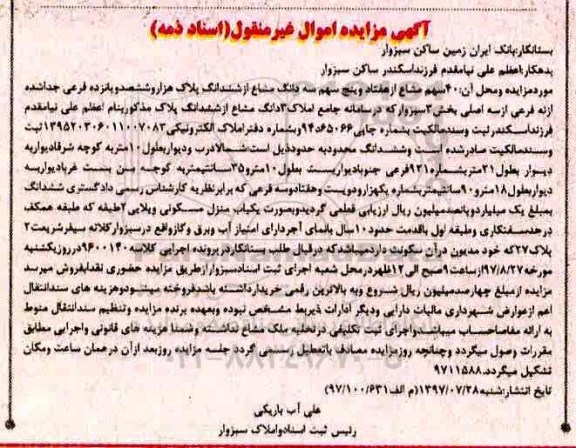 آگهی مزایده اموال غیرمنقول(اسناد ذمه)
بستانکار:بانک ایران زمین ساکن سبزوار
بدهکار:اعظم علی نیامقدم فرزنداسکندر ساکن سبزوار
موردمزایده ومحل آن:۴۰سهم مشاع ازهفتاد وپنج سهم سه دانگ مشاع ازششدانگ پلاک هزاروششصدوپانزده فرعی جداشده
ازنه فرعی ازسه اصلی بخش۳سبزوارکه درسامانه جامع املاک۳دانگ مشاع ازششدانگ پلاک مذکوربنام اعظم علی نیامقدم
فرزنداسکندرثبت وسندمالکیت بشماره چاپی۶۵۰۶۶۵د۹۴وبشماره دفتراملاک الکترونیکی۱۳۹۵۲۰۳۰۶۰۱۱۰۰۷۰۸۳ثبت
وسندمالکیت صادرشده است وششدانگ محدودبه حدودذیل است:شمالادرب ودیواربطول۱۰متربه کوچه شرقادیواربه
دیوار بطول۲۱متربشماره۹۲۱فرعی جنوبادیواریست بطول۱۰مترو۳۵سانتیمتربه کوچه بن بست غربادیواربه
دیواربطول۱۸مترو۹۰سانتیمتربشماره یکهزارودویست وحفتادوسه فرعی که برابرنظریه کارشناس رسمی دادگستری ششدانگ
بمبلغ یک میلیاردوپانصدمیلیون ریال ارزیابی قطعی گردیدوبصورت یکباب منزل مسکونی ویلایی۲طبقه که طبقه همکف
درحدسفتکاری وطبقه اول باقدمت حدود۱۰سال بانمای آجردارای امتیاز آب وبرق وگازواقع درسبزوارکلاته سیفرشریعت۲
پلاک۲۷که خود مدیون درآن سکونت داردمیباشدکه درقبال طلب بستانکاردرپرونده اجرایی کلاسه۹۶۰۰۱۴۰درروزیکشنبه
مورخه۹۷/۸/۲۷ازساعت۹صبح الی۱۲ظهردرمحل شعبه اجرای ثبت اسنادسبزوارازطریق مزایده حضوری نقدابفروش میرسد
مزایده ازمبلغ چهارصدمیلیون ریال شروع وبه بالاترین رقمی خریدارداشته باشدفروخته میشودوهزینه های سندانتقال
اعم ازعوارض شهرداری مالیات دارایی ودیگر ادارات ذیربط مشخص نبوده وبعهده برنده مزایده وتنظیم سندانتقال منوط
به ارائه مفاصاحساب میباشدواجرای ثبت تکلیفی درتخلیه ملک مشاع نداشته وضمنا هزینه های قانونی واجرایی مطابق
مقررات وصول میگردد وچنانچه روزمزایده مصادف باتعطیل رسمی گردد جلسه مزایده روزبعد ازآن درهمان ساعت ومکان
تشکیل میگردد.۹۷۱۱۵۸۸
تایخ انتشار:شنبه۱۳۹۷/۰۷/۲۸(م الف۹۷/۱۰۰/۶۳۱)
علی آب باریکی
رئیس ثبت اسنادواملاک سبزوار